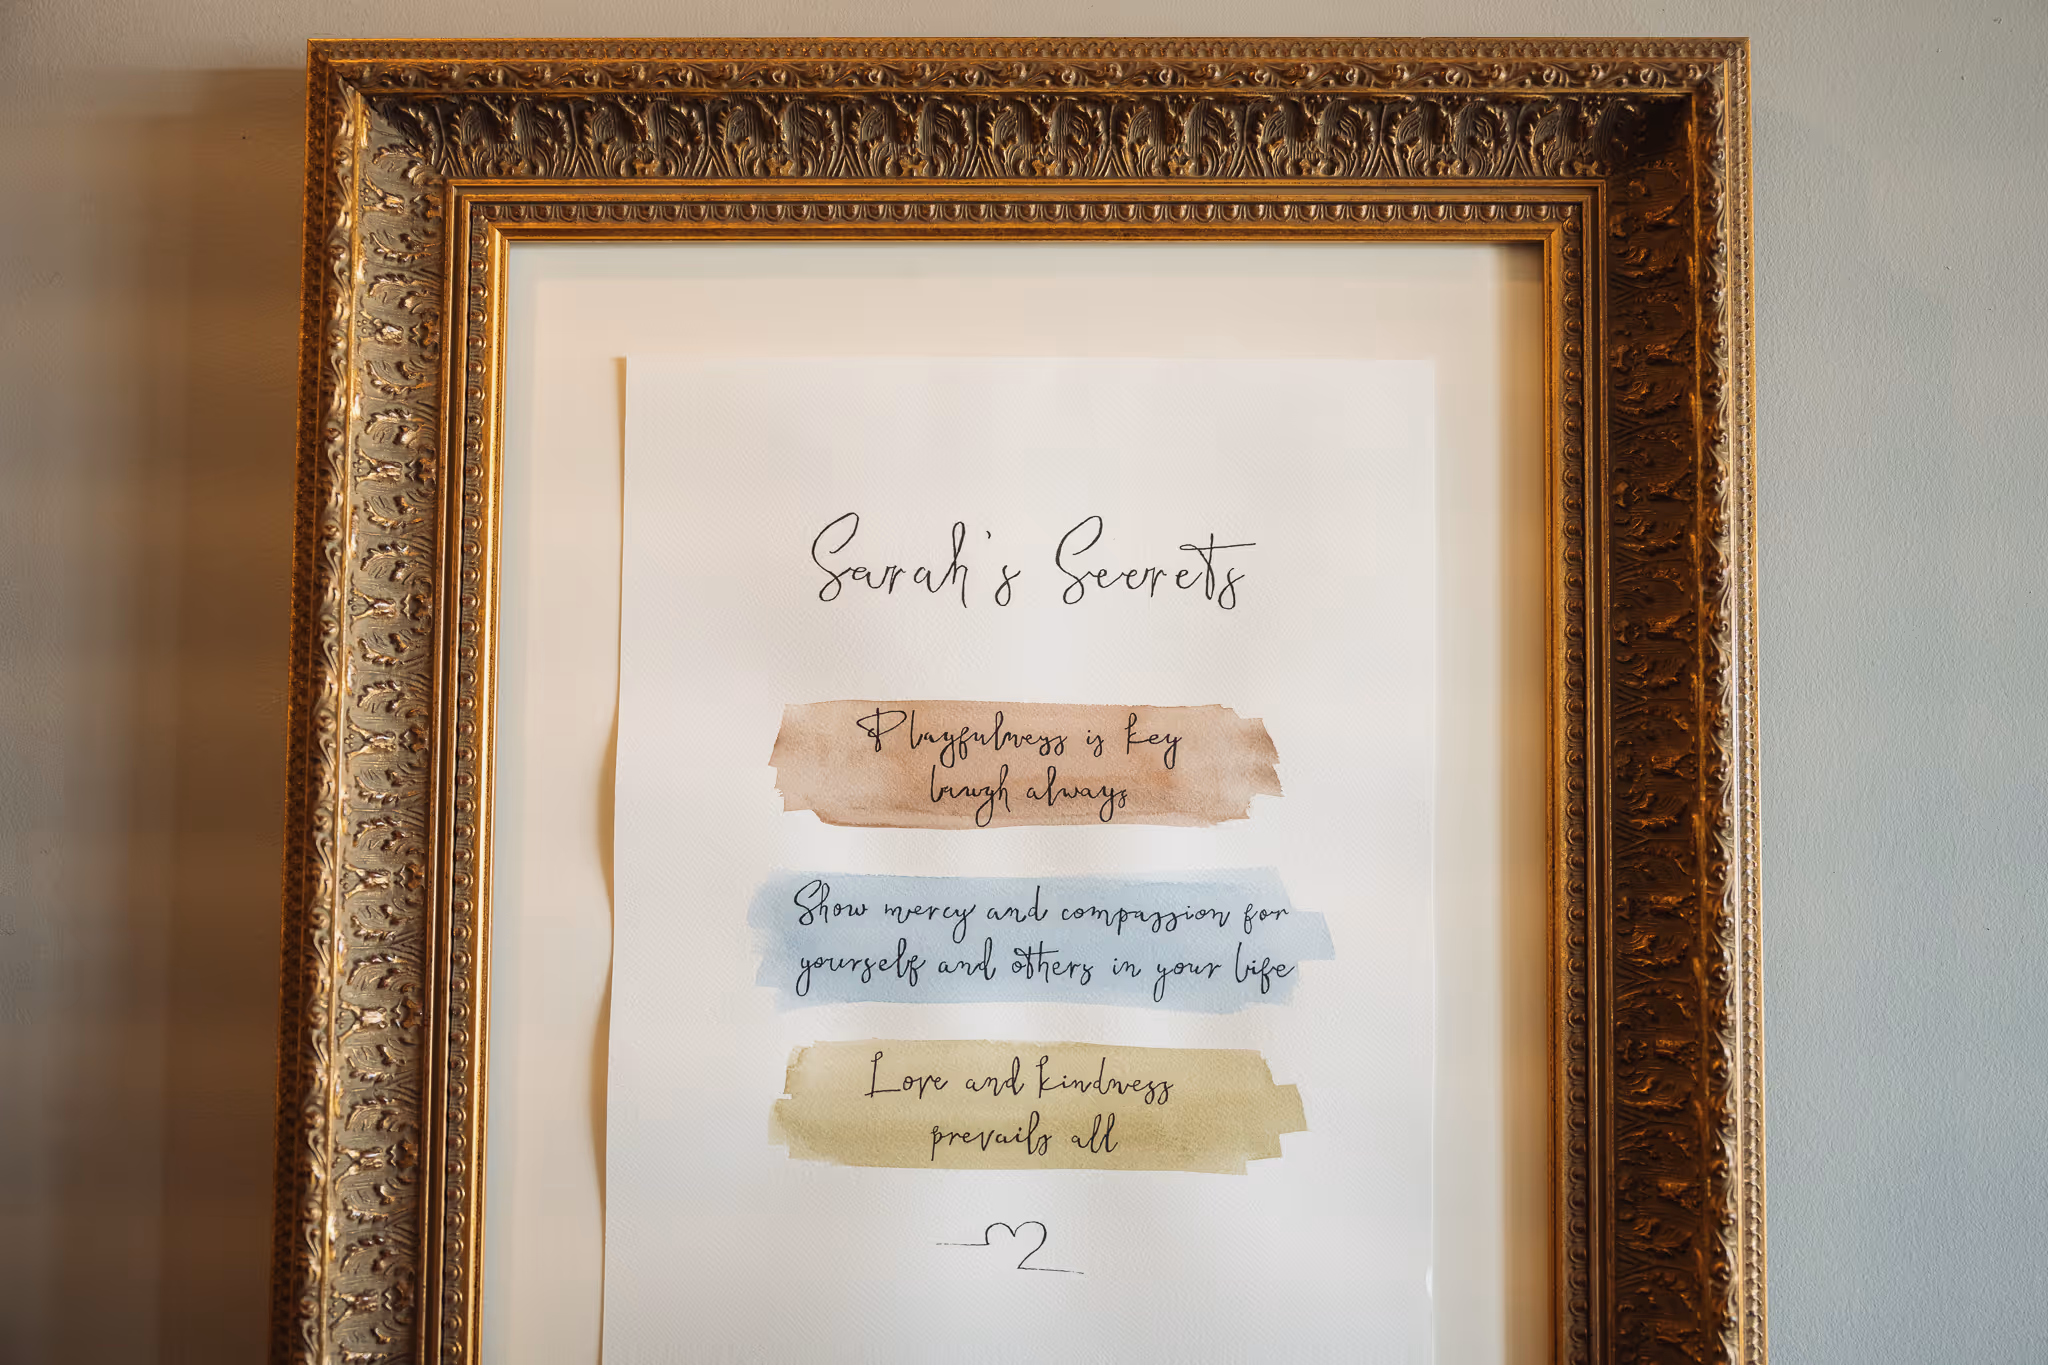 Sarah's Secrets
Playfulness is key
laugh always
Show mercy and compassion for
yourself and others in your life
Love and kindness
prevails all